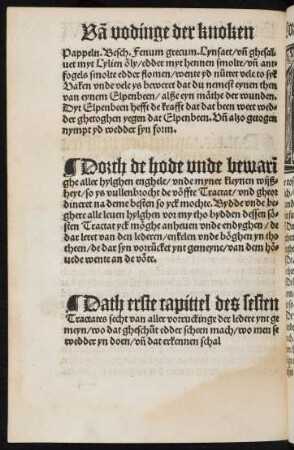 Uā vodinge der knoken
Pappeln. Besch. Fenum grecum. Lynsaet/vn̄ ghesal-
uet myt Lylien öly/edder myt hennen smolte/vn̄ ant-
fogels smolte edder flomen/wente yd ys nütter vele to syk
Vaken vnde vele ys beweret dat du nemest eynen then
van eynem Elpenbeen/alse eyn mathe der wunden.
Dyt Elpenbeen hefft de krafft dat dat been wert wed-
der ghetoghen yegen dat Elpenbeen. Vn̄ also getogen
nympt yd wedder syn form.
Dorch de hode vnde bewarin
ghe aller hylghen enghele/vnde myner kleynen wyß-
heyt/so ys vullenbrocht de vöffte Tractat/vnd gheor
dineret na deme besten so yck mochte. Bydde vnde be-
ghere alle leuen hylghen vor my tho bydden dessen sös-
ten Tractat yck möghe anheuen vnde endyghen/de
dar leret van den lederen/enkelen vnde böghen yn tho
theen/de dar syn vorrücket ynt gemeyne/van dem hö-
uede wente an de vöte.
Dath erste capittel des sesten
Tractates secht van aller vorruckinge der ledere ynt ge
meyn/wo dat gheschüt edder scheen mach/wo men se
wedder yn doen/vn̄ dat erkennen schal